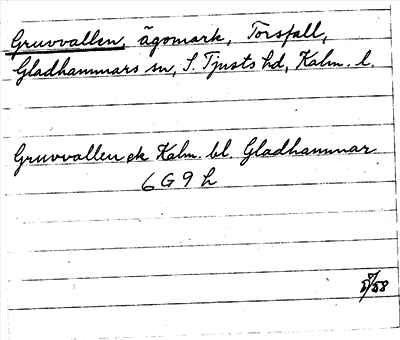 Gruvvallen, ägomark, Torsfall,
Gladhammars sn, S. Tjusts hd, Kalm. l.
Gruvvallen ek Kalm. bl. Gladhammar
6 G 9 h